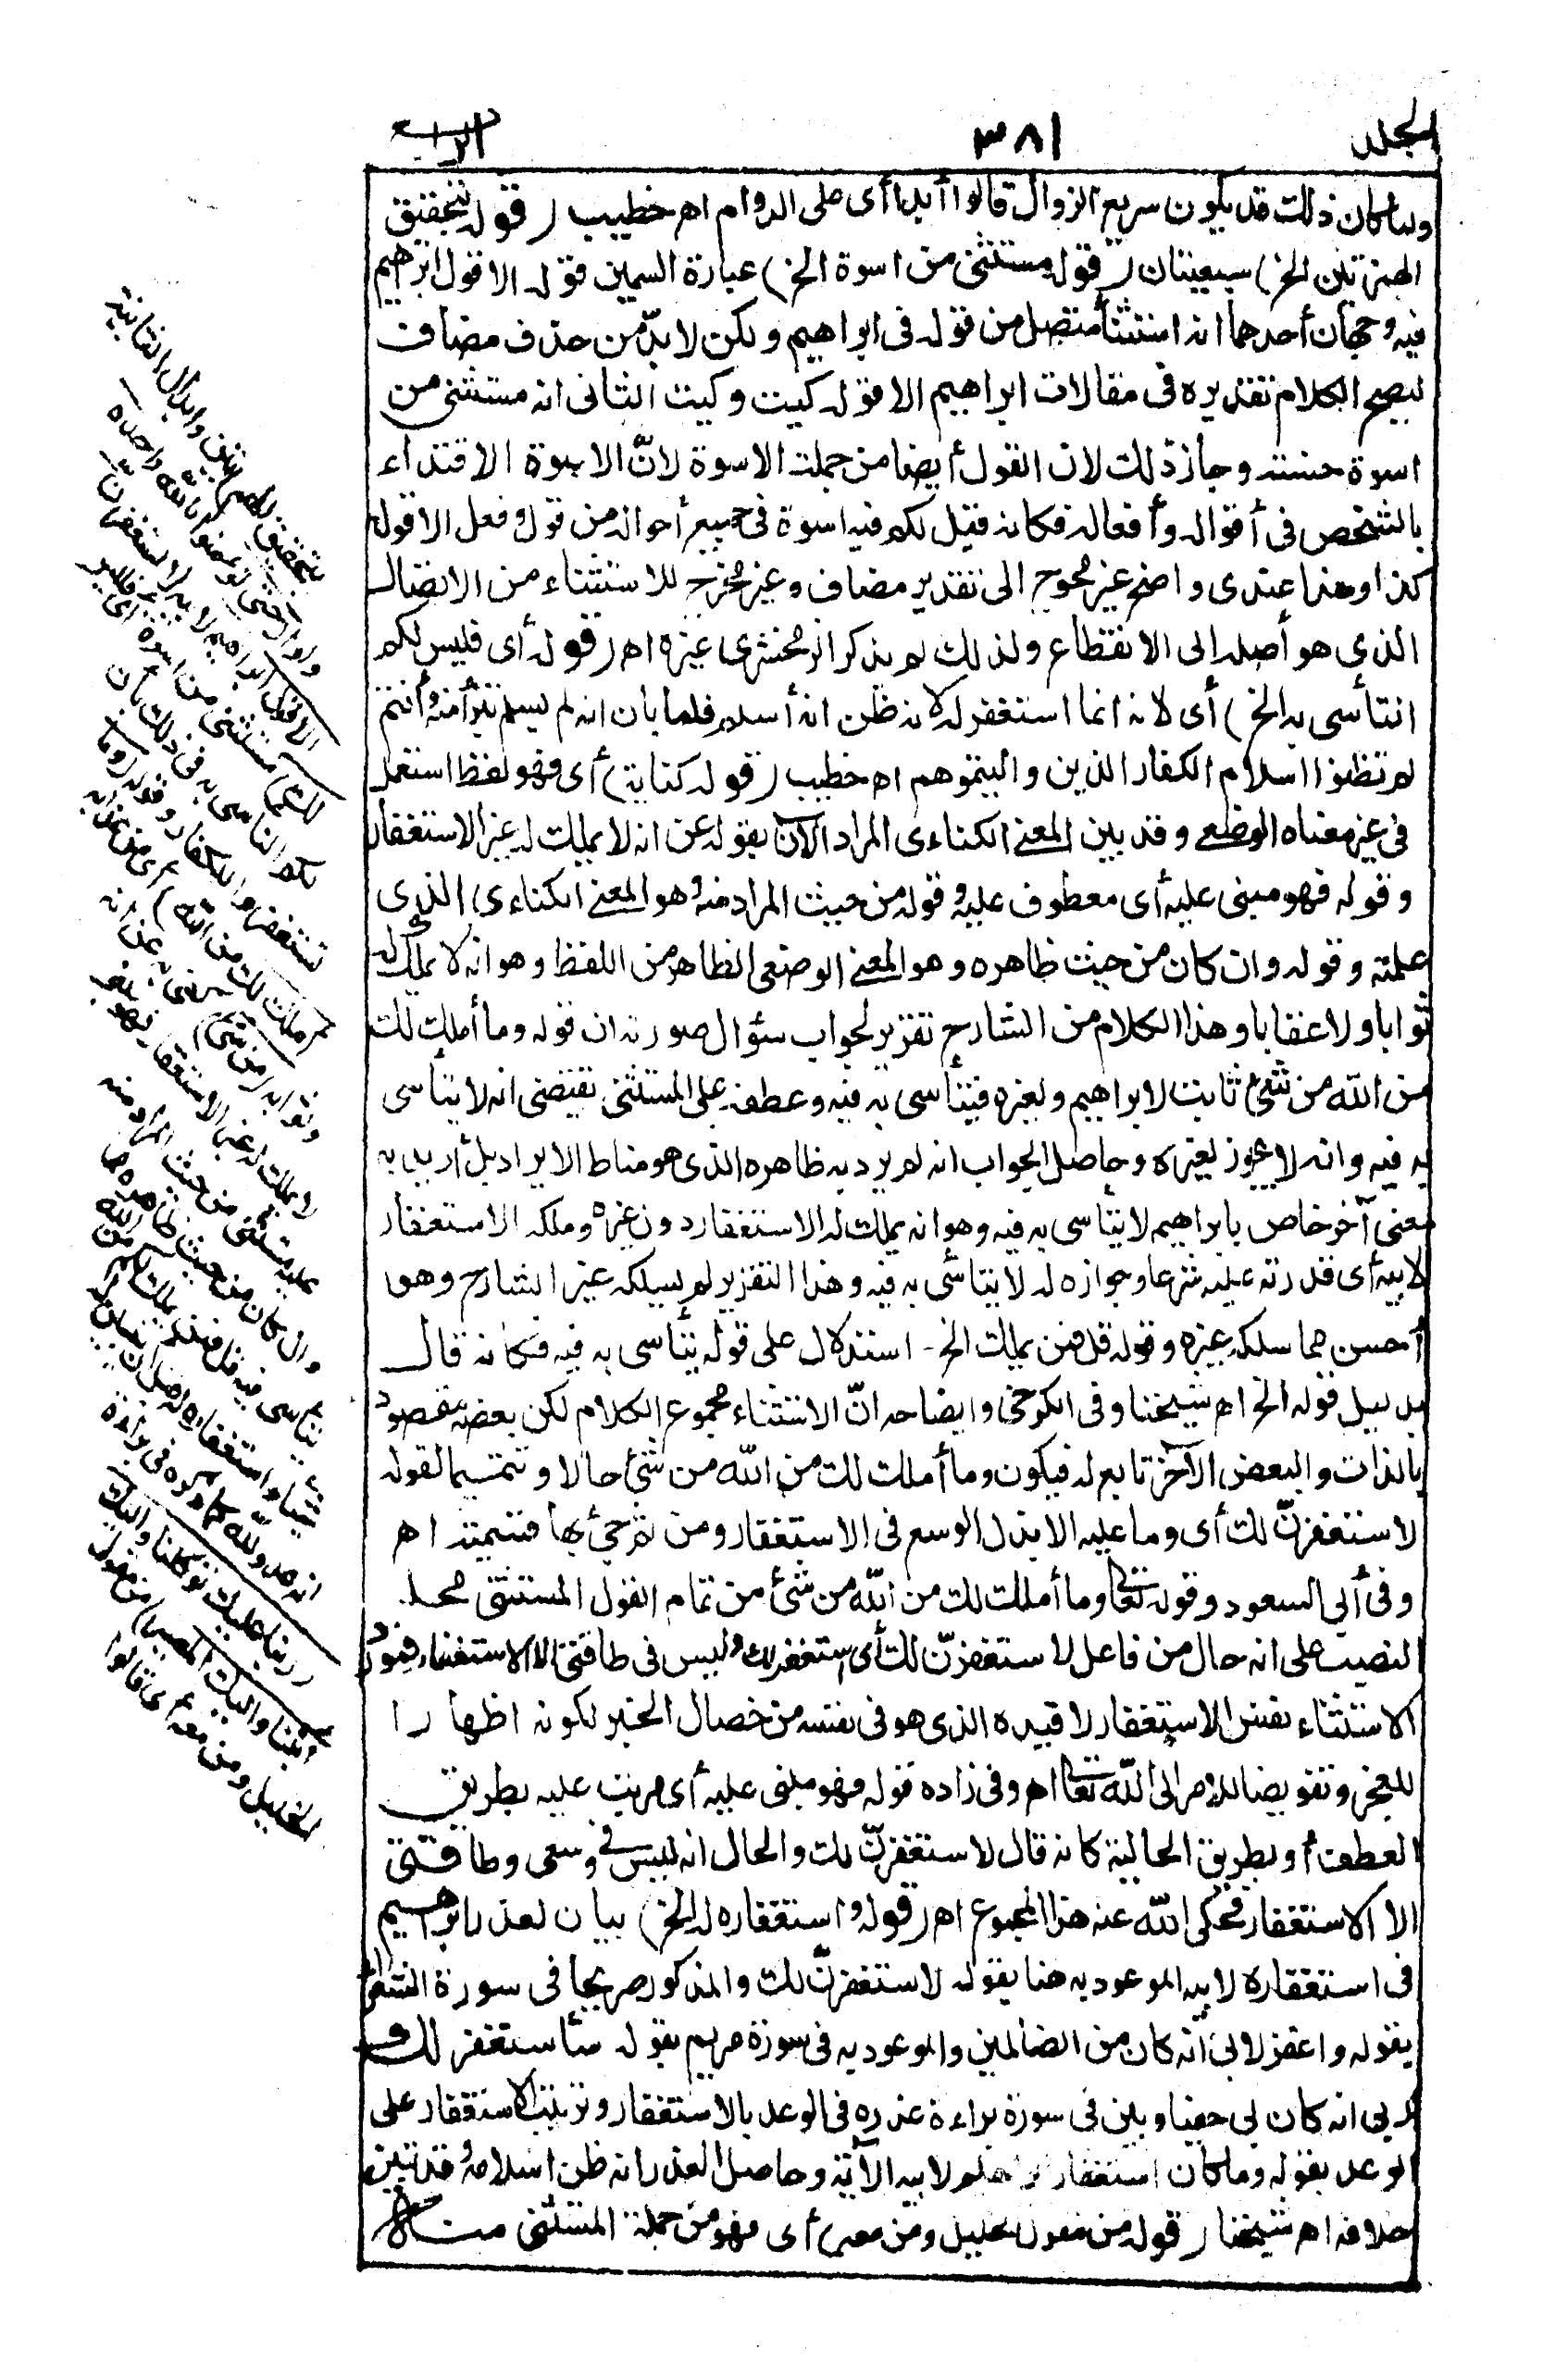 الجلد ٣٨١ الرابع
ولما كان ذلك قد يكون سريع الزوال قالوا أبدا أى على الدوام اه خطيب (قوله بتحقيق
الهمزتين الخ) سبعيتان (قوله مستثنى من اسوة الخ) عبارة السمين قوله الا قول ابراهيم
فيه وجهان أحدهما انه استثنأ متصل من قوله فى ابراهيم ولكن لا بدّ من حذف مضاف
ليصح الكلام تقديره فى مقالات ابراهيم الا قوله كيت وكيت الثانى انه مستثنى من
اسوة حسنة وجاز ذلك لان القول أيضا من جملة الاسوة لانّ الاسوة الاقتداء
بالشخص فى أقواله وأفعاله فكانه قيل لكم فيه اسوة فى جميع أحواله من قول وفعل الا قوله
كذا وهذا عندى واضح غير محوج الى تقدير مضاف وغير مخرج للاستثناء من الاتصال
الذى هو أصله إلى الانقطاع ولذلك لم يذكر الزمخشرى غيره اه (قوله أى فليس لكم
التأسى به الخ) أى لانه انما استغفر له لانه ظن انه أسلم فلما بان انه لم يسلم تبرأ منه وأنتم
لم تظنوا اسلام الكفار الذين واليتموهم اه خطيب (قوله كناية) أى فهو لفظ استعمل
فى غير معناه الوضعى وقد بين المعنى الكناءى المراد الآن بقوله عن انه لا يملك له غير الاستغفار
وقوله فهو مبنى عليه أى معطوف عليه وقوله من حيث المراد منه وهو المعنى الكناءى الذى
علمته وقوله وان كان من حيث ظاهره وهو المعنى الوضعى الظاهر من اللفظ وهو انه لا يملك له
ثوابا ولا عقابا وهذا الكلام من الشارح تقرير لجواب سؤال صورته ان قوله وما أملك لك
من الله من شئ ثابت لابراهيم ولغيره فيتأسى به فيه وعطفه على المستثنى يقتضى انه لا يتأسى
به فيه وانه لا يجوز لغيره وحاصل الجواب انه لم يرد به ظاهره الذى هو مناط الايراد بل أريد به
معنى آخر خاص بابراهيم لا يتأسى به فيه وهو انه يملك له الاستغفار دون غيره وملكه الاستغفار
لابيه أى قدرته عليه شرعا وجوازه له لا يتأسى به فيه وهذا التقرير لم يسلكه غير الشارح وهو
أحسن مما سلكه غيره وقوله قل فمن يملك الخ استدلال على قوله يتأسى به فيه فكانه قال
بدليل قوله الخ اه شيخنا وفى الكرخى وايضاحه انّ الاستثناء مجموع الكلام لكن بعضه مقصود
بالذات والبعض الآخر تابع له فيكون وما أملك لك من الله من شئ حالا وتتميما لقوله
لاستغفرنّ لك أى وما عليه الا بذل الوسع فى الاستغفار ومن ثم جئ بها فتتمته اه
وفى أبى السعود وقوله تعالى وما أملك لك من الله من شئ من تمام القول المستثنى محله
النصب على انه حال من فاعل لاستغفرنّ لك أى استغفر لك وليس فى طاقتى الا الاستغفار فمورد
الاستثناء نفس الاستغفار لا قيده الذى هو فى نفسه من خصال الخير لكونه اظهارا
للعجز وتفويضا للامر الى الله تعالى اه وفى زاده قوله فهو مبنى عليه أى مرتب عليه بطريق
العطف أو بطريق الحالية كانه قال لاستغفرنّ لك والحال انه ليس فى وسعى وطاقتى
الا الاستغفار فحكى الله عنه هذا المجموع اه (قوله واستغفاره له الخ) بيان لعذر ابراهيم
فى استغفاره لابيه الموعود به هنا بقوله لاستغفرنّ لك والمذكور صريحا فى سورة الشعراء
بقوله واغفر لابى انه كان من الضالين والموعود به فى سورة مريم بقوله سأستغفر لك
ربى انه كان بى حفيا وبين فى سورة براءة عذره فى الوعد بالاستغفار وترتيب الاستغفار على
الوعد بقوله وما كان استغفار ابراهيم لابيه الآية وحاصل العذر انه ظن اسلامه وقد تبين
خلافه اه شيخنا (قوله من مقول الخليل ومن معه) أى فهو من جملة المستثنى
بتحقيق الهمزتين وابدال الثانية
واوا (حتى تؤمنوا بالله وحده
الا قول ابراهيم لابيه لاستغفرنّ
لك) مستثنى من اسوة أى فليس
لكم التأسى به فى ذلك بأن
تستغفروا للكفار وقوله (وما
أملك لك من الله) أى من عذابه
وثوابه (من شئ) كنى به عن انه
لا يملك له غير الاستغفار فهو مبنى
عليه مستثنى من حيث المراد منه
وان كان من حيث ظاهره مما
يتأسى فيه قل فمن يملك لكم من الله
شيئا واستغفاره له قبل ان يتبين له
انه عدو لله كما ذكره فى براءة
(ربنا عليك توكلنا واليك
أنبنا واليك المصير) من مقول
الخليل ومن معه أى قالوا